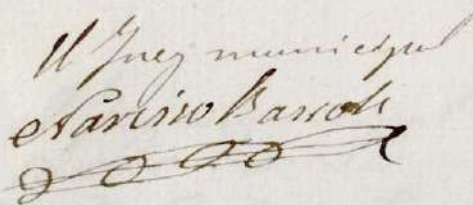 El Juez municipal
Narciso Barroli